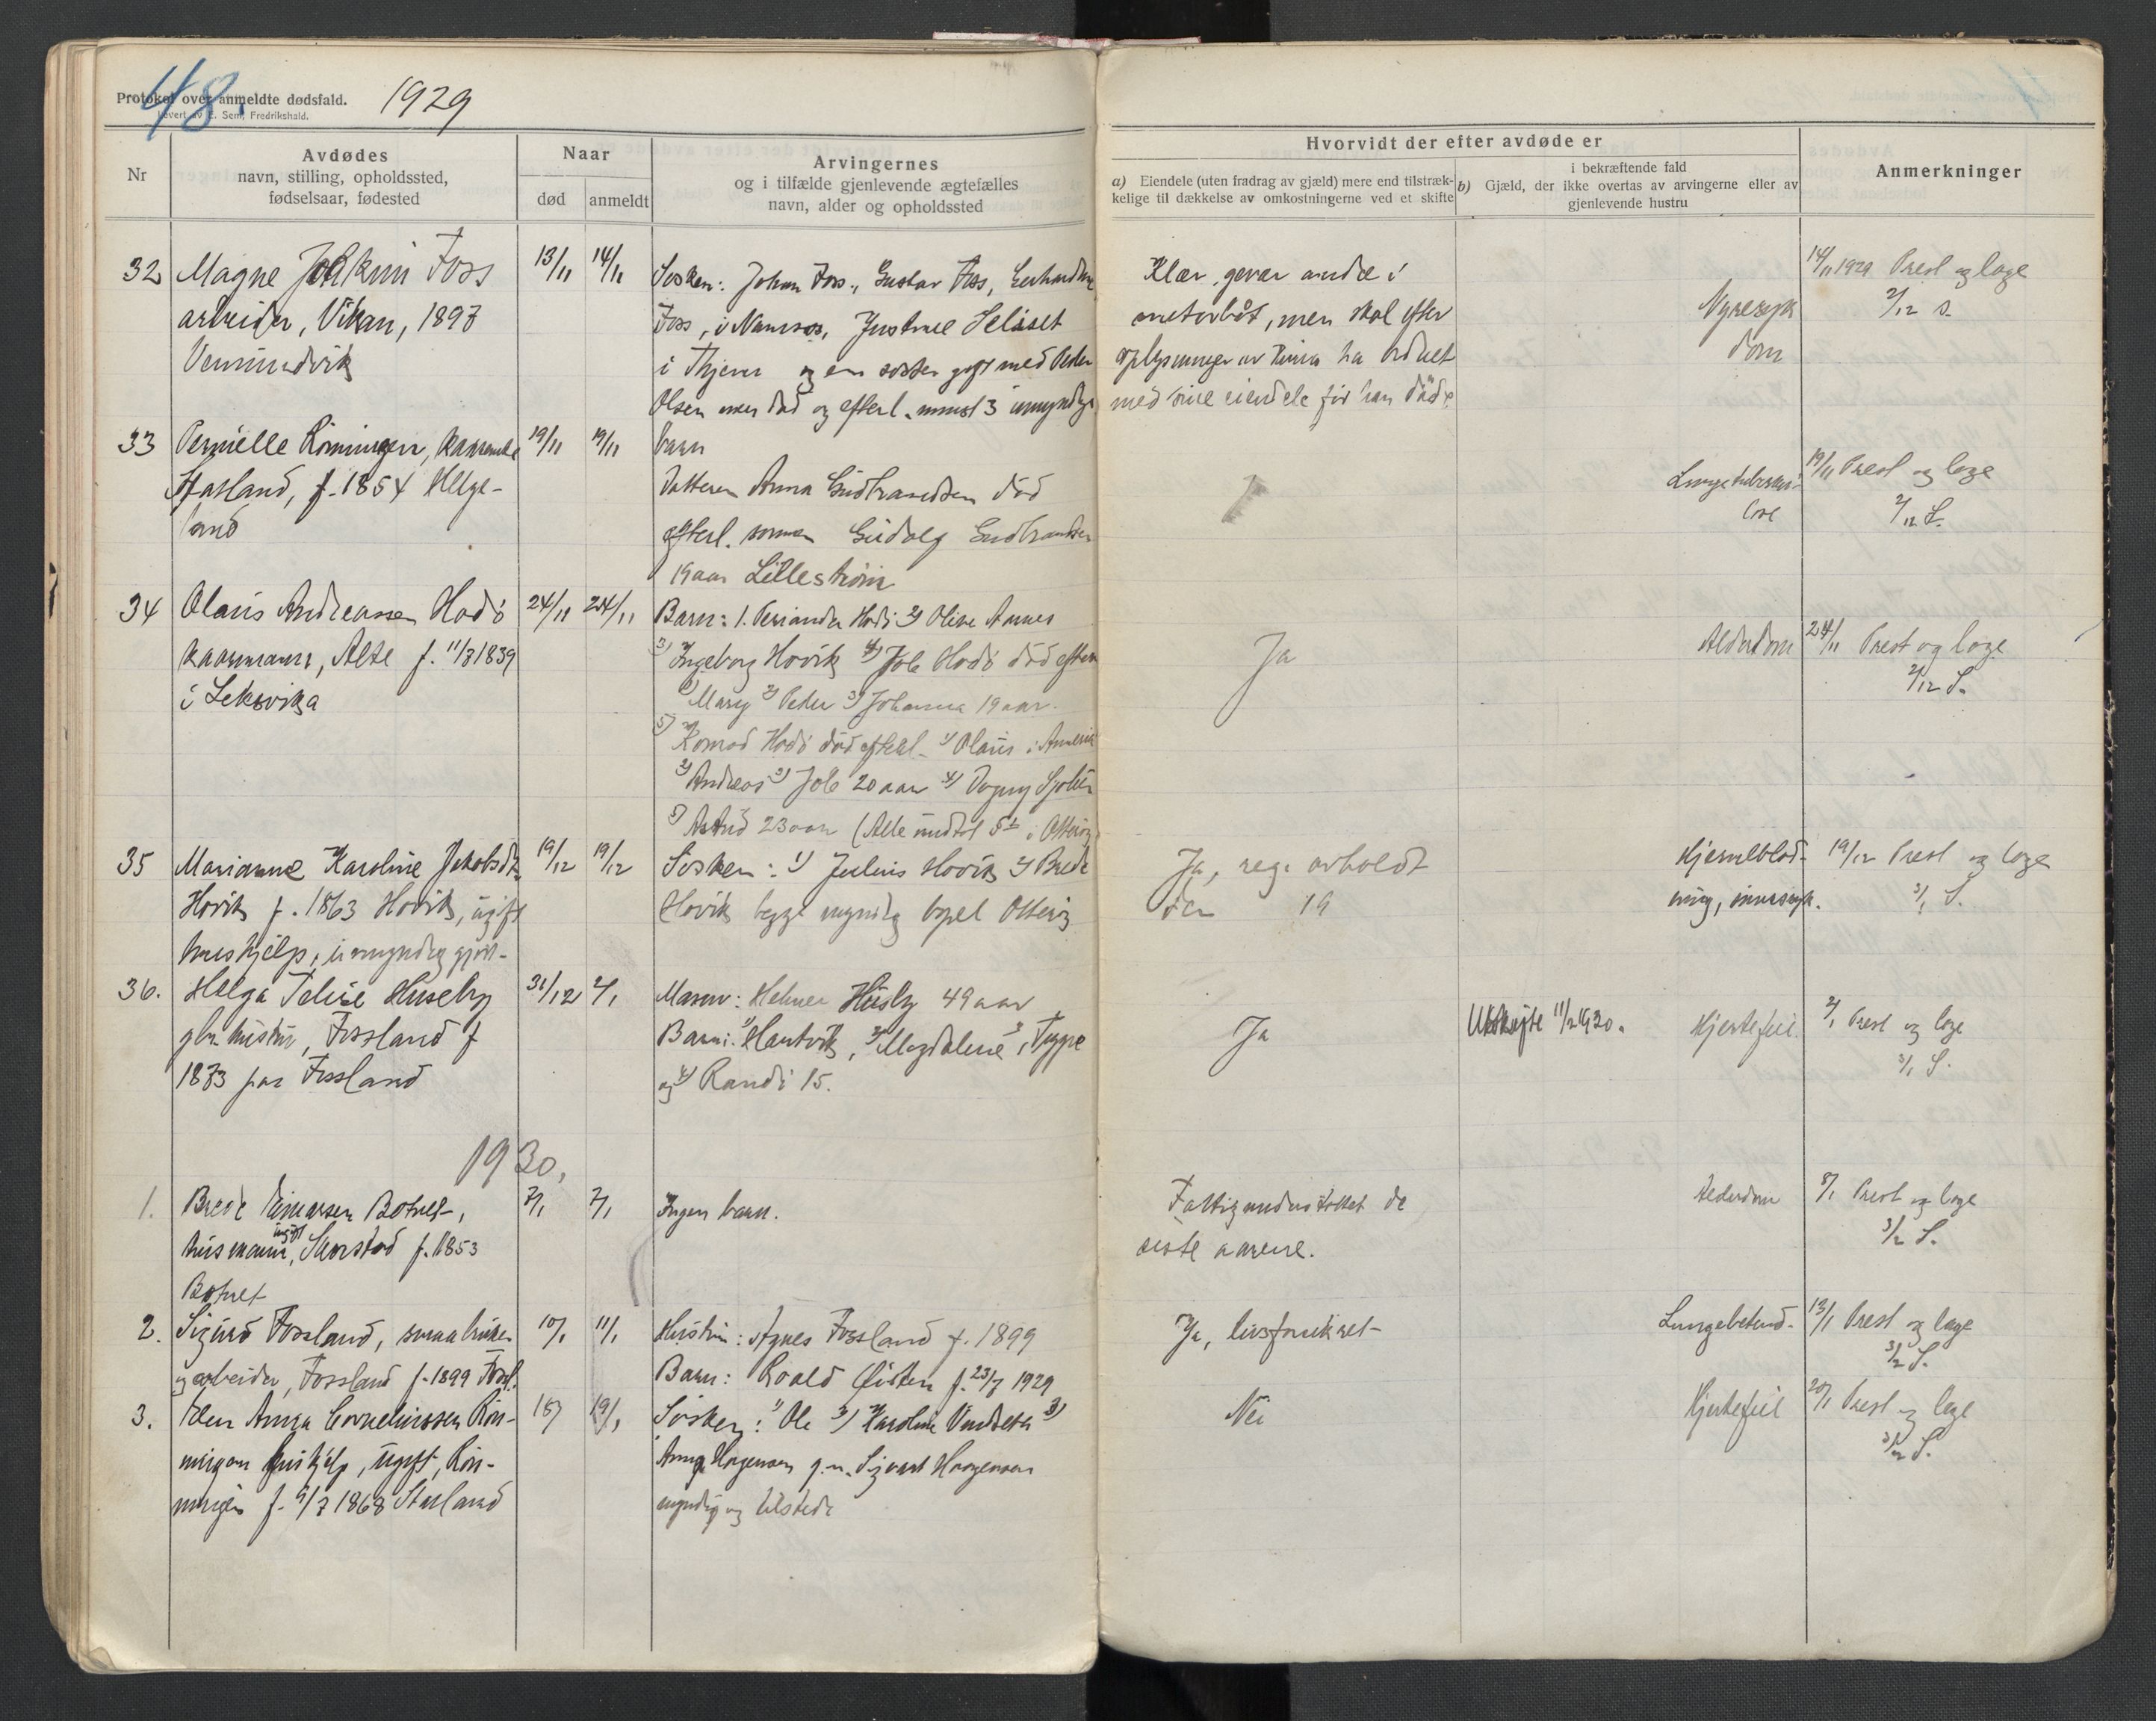 48.
Protokol over anmeldte dødsfald. 1929
Levert av E. Sem, Fredrikshald.
Nr
Avdødes
navn, stilling, opholdssted,
fødselsaar, fødested
Naar
død anmeldt
Arvingernes
og i tilfælde gjenlevende ægtefælles
navn, alder og opholdssted
Hvorvidt der efter avdøde er
a) Eiendele (uten fradrag av gjæld) mere end tilstræk-
kelige til dækkelse av omkostningerne ved et skifte
i bekræftende fald
b) Gjæld, der ikke overtas av arvingerne eller av
gjenlevende hustru
Anmerkninger
32 Magne Joakim Foss 13/11 14/11
arbeider, Vikan, 1893
Vemundvik
Søsken: Johan Foss, Gustav Foss,
Foss, i Namsos, Selisset
i og en søster gift med Peder
Olsen men død og efterl. minst 3 umyndige
barn
Klær, gevær andel i
motorbåt, men skal efter
oplysninger av ha ordnet
med sine eiendele før han døde
Nyresyk
dom
14/11 1929 Prest og lege
2/12 S.
33 Pernielle Rømingen, 19/11 19/11
f. 1854 Helge-
land
Datteren Anna Gudbrandsen død
efterl. sønnen Gudbrandsen
19 aar Lillestrøm
Lungetuberku-
lose
19/11 Prest og lege
2/12 S.
34 Olaus Andreassen Hodø 24/11 24/11
kaarmann, Alte f. 11/3 1839
i Leksvika
Barn: 1. Hodø 2) Oline Aarnes
3) Ingeborg Hovik 4) Job Hodø død efterl
1) Mary 2) Peder 3) Johanna 19 aar.
5) Konrad Hodø død efterl. 1) Olaus i Amerik
2) Andreas 3) Job 20 aar 4) Dagny
5) Astrid 23 aar (Alle i Otterøy
Ja
Alderdom
24/11 Prest og lege
2/12 S.
35 Marianne Karoline Jakobsdtr. 19/12 19/12
Hovik f. 1863 Hovik, ugift
hushjelp, umyndiggjort.
Søsken: 1) Julius Hovik 2) Brede
Hovik begge myndig bopel Otterøy
Ja, reg. avholdt
den 19
Hjerneblød-
ning, sinnssyk.
19/12 Prest og lege
3/1 S.
36. Helga Huseby 31/12 2/1
gbr. hustru, Fossland f
1873 paa Fossland
Mann: Helmer Huseby 49 aar
Barn: 1) Hartvik, 2) Magdalene, 3) Trygve
og 4) Randi 15.
Ja
Utskrift 11/2 1930.
Hjertefeil.
2/1 Prest og lege
3/1 S.
1930,
1. Brede Einarsen Botnet, 7/1 7/1
husmann, ugift, Skorstad f. 1853
Botnet
Ingen barn.
Fattigunderstøttet de
siste aarene.
Alderdom
8/1 Prest og lege
3/2 S.
2. Sigurd Fossland, smaabruker 10/1 11/1
og arbeider, Fossland f. 1899 Fossl.
Hustru: Agnes Fossland f. 1899
Barn: Roald Øisten f. 23/7 1929
Ja, livsforsikret
Lungebetend-
13/1 Prest og lege
3/2 S.
3. Anna Corneliussen Røn- 18/1 19/1
ningen hushjelp, ugift, Røn-
ningen f. 9/3 1868
Søsken: 1) Ole 2) Karoline 3)
Anna Haagensen g.m. Sigvart Haagensen
myndig og tilstede
Nei
Hjertefeil
20/1 Prest og lege
3/2 S.